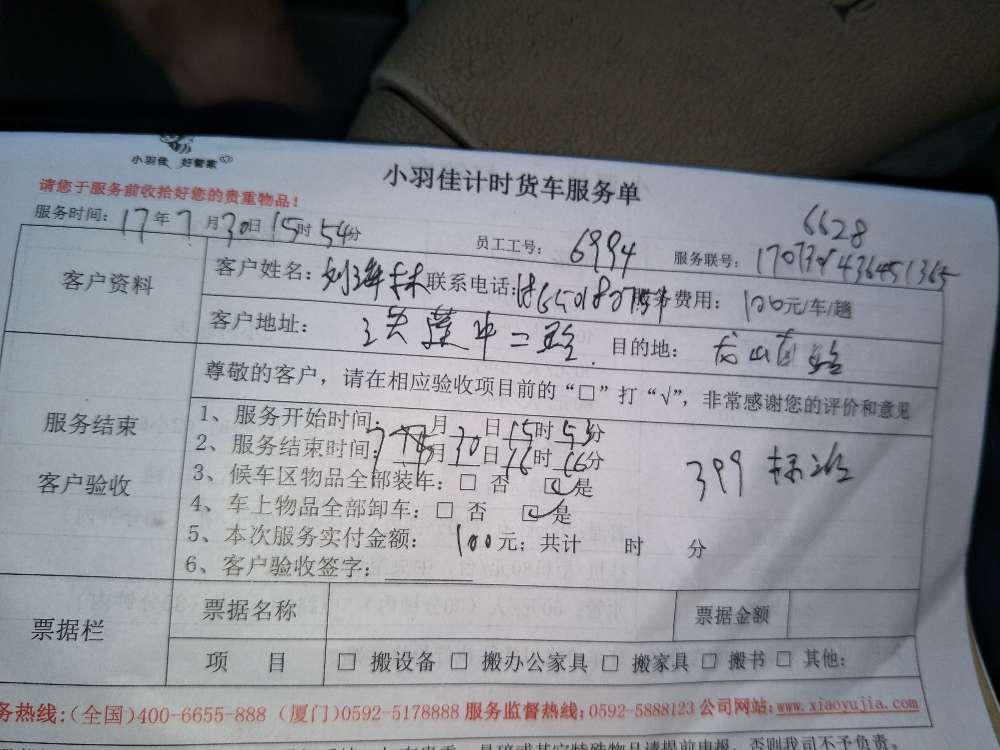 小羽佳 好管家
小羽佳计时货车服务单
请您于服务前收拾好您的贵重物品！
6628
服务时间：17年7月30日15时54分 员工工号：6994 服务联号：
客户资料
客户姓名： 联系电话： 费用：100元/车/趟
客户地址： 目的地：
尊敬的客户，请在相应验收项目前的“□”打“√”，非常感谢您的评价和意见
服务结束
客户验收
1、服务开始时间：月30日15时53分
2、服务结束时间：7月30日16时16分
3、候车区物品全部装车：□ 否 □ 是
4、车上物品全部卸车：□ 否 □ 是
399
5、本次服务实付金额：100元；共计 时 分
6、客户验收签字：
票据栏
票据名称 票据金额
项 目 □ 搬设备 □ 搬办公家具 □ 搬家具 □ 搬书 □ 其他：
务热线：（全国）400-6655-888（厦门）0592-5178888 服务监督热线：0592-5888123 公司网站：www.xiaoyujia.com
物品请提前申报，否则我司不予负责。